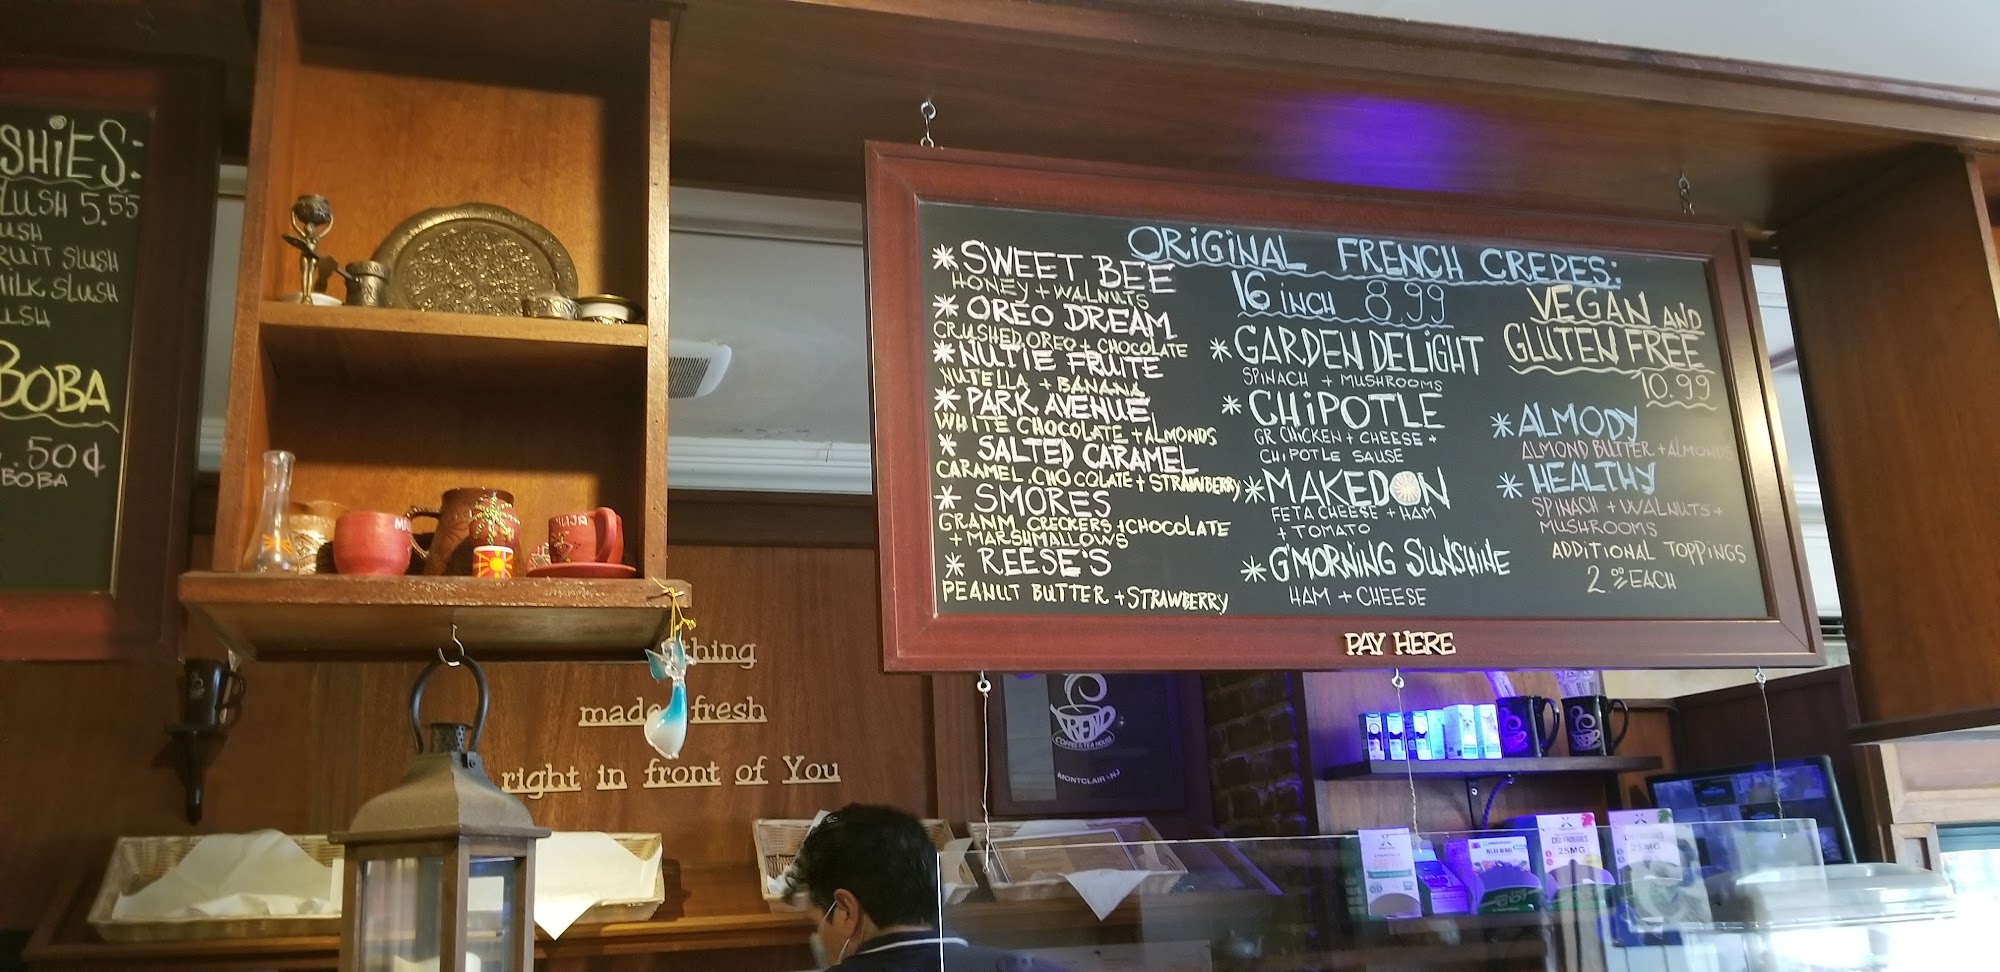 SHiES:
LUSH 5.55
USH
RUIT SLUSH
MILK SLUSH
USH
BOBA
.50¢
BOBA
thing
made fresh
right in front of You
ORiGiNAL FRENCH CREPES:
16 iNCH 8.99
* SWEET BEE
HONEY + WALNUTS
* OREO DREAM
CRUSHED OREO + CHOCOLATE
* NUTIE FRUITE
NUTELLA + BANANA
* PARK AVENUE
WHITE CHOCOLATE + ALMONDS
* SALTED CARAMEL
CARAMEL.CHOCOLATE + STRAWBERRY
* SMORES
GRANM CRECKERS + CHOCOLATE
+ MARSHMALLOWS
* REESE'S
PEANUT BUTTER + STRAWBERRY
* GARDEN DELiGHT
SPINACH + MUSHROOMS
* CHiPOTLE
GR CHICKEN + CHEESE +
CHiPOTLE SAUSE
* MAKEDON
FETA CHEESE + HAM
+ TOMATO
* G'MORNING SUNSHINE
HAM + CHEESE
VEGAN AND
GLUTEN FREE
10.99
* ALMODY
ALMOND BUTTER + ALMONDS
* HEALTHY
SPINACH + WALNUTS +
MUSHROOMS
ADDITIONAL TOPPINGS
2.00 EACH
PAY HERE
TREND
COFFEE & TEA HOUSE
MONTCLAIR - NJ
25MG
25MG